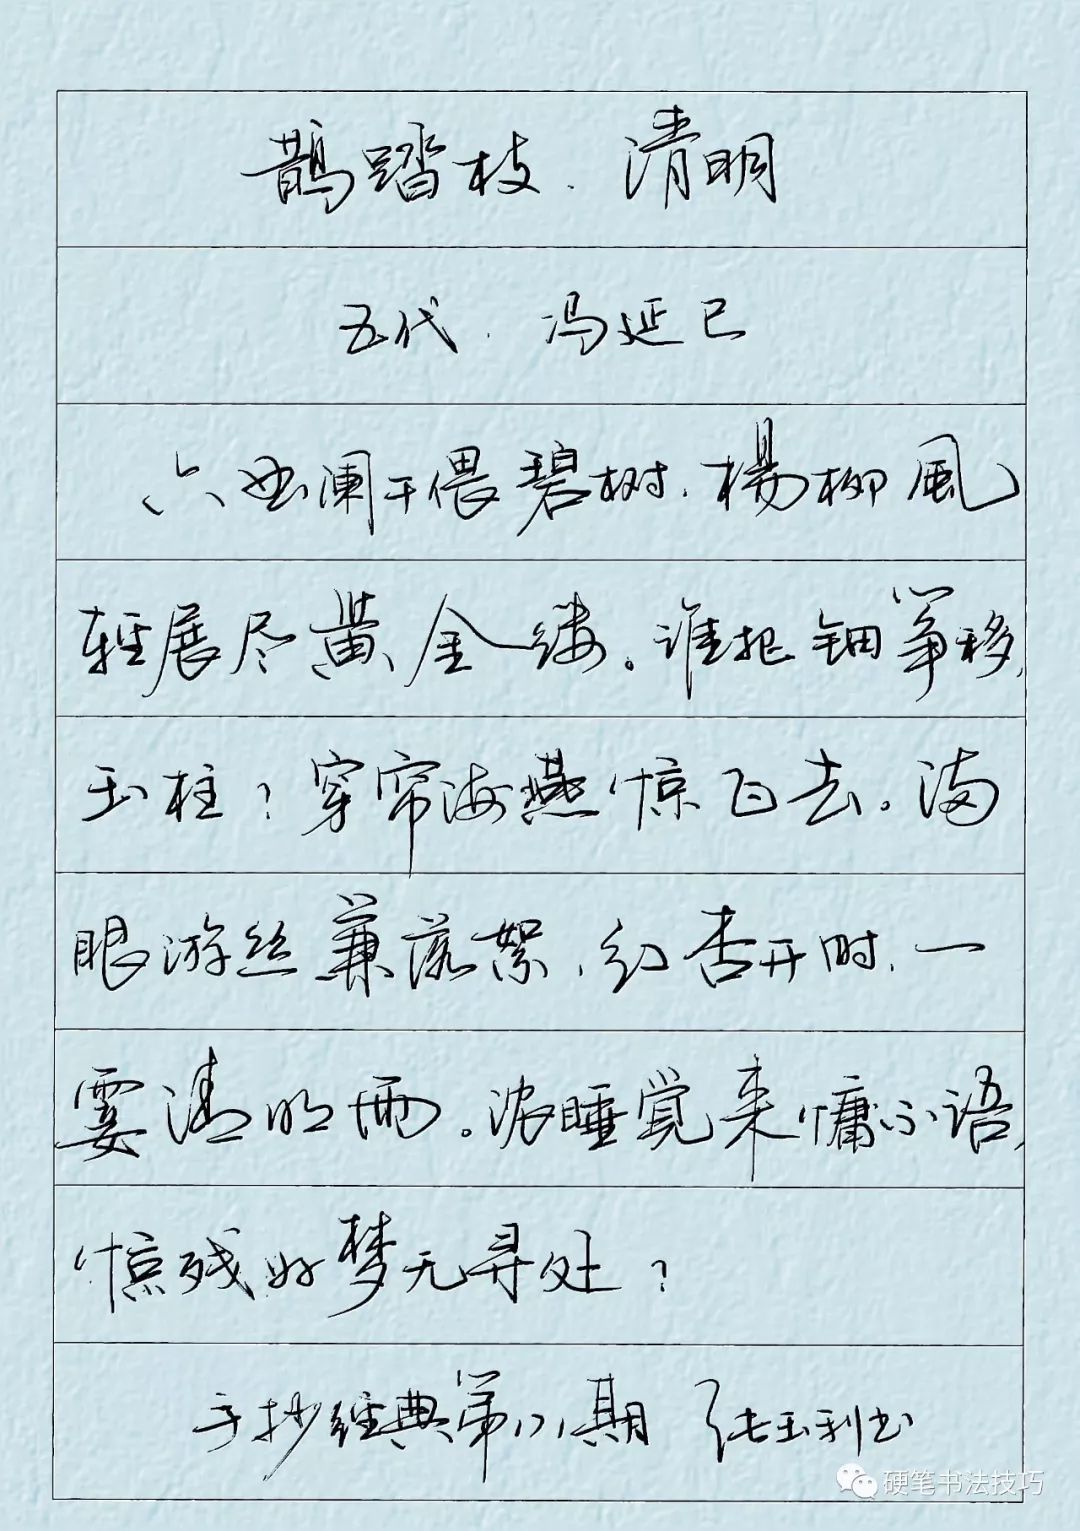 鹊踏枝.清明
五代.冯延巳
六曲阑干偎碧树,楊柳風
輕展尽黄金缕。谁把钿筝移
玉柱?穿帘海燕惊飞去。满
眼游丝兼落絮,红杏开时,一
霎清明雨。浓睡觉来慵不语,
惊残好梦无寻处?
手抄经典第八期 张玉利书
硬笔书法技巧